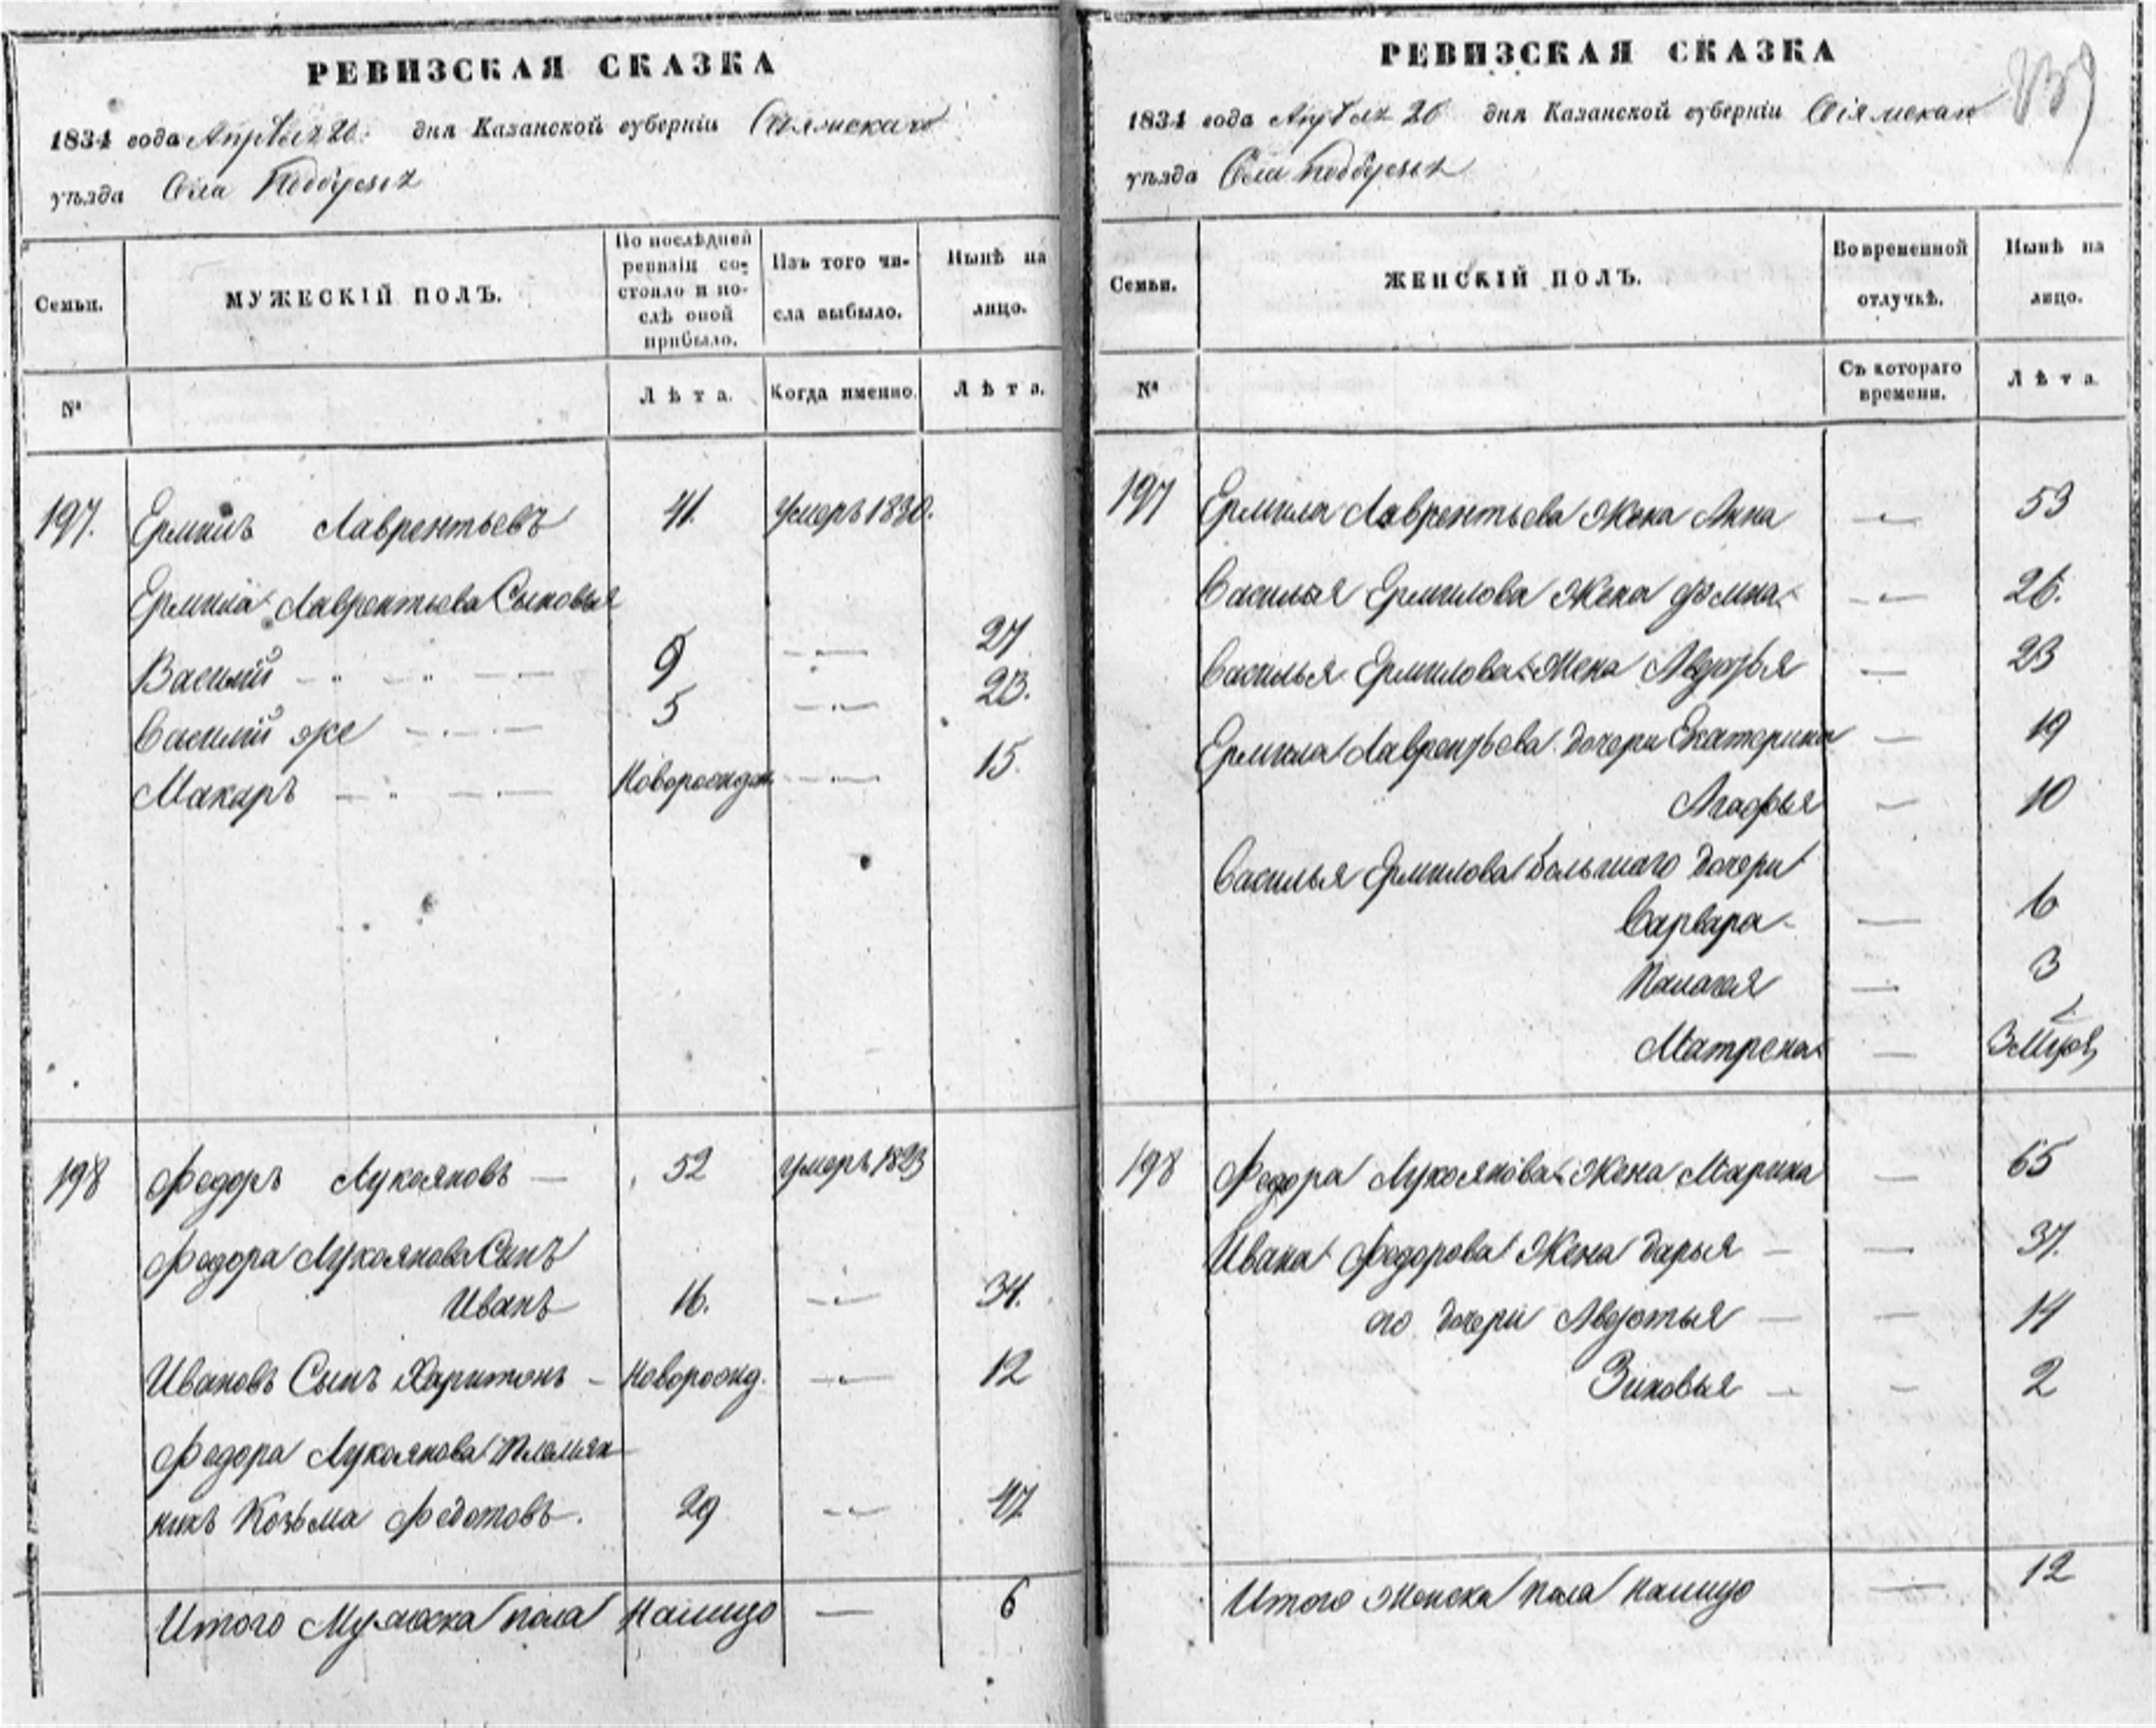 РЕВИЗСКАЯ СКАЗКА
1834 года Апреля 20. дня Казанской губерніи Свіяжскаго
уѣзда Села
Семьи. МУЖЕСКІЙ ПОЛЪ. По послѣдней ревизіи состояло и послѣ оной прибыло. Изъ того числа выбыло. Нынѣ на лицо.
№ Лѣта. Когда именно. Лѣта.
197. Ермилъ Лаврентьевъ 41. Умеръ 1830.
Ермила Лаврентьева Сыновья
Василий 9 27
Василий же 5 23.
Макаръ Новорожден 15.
198 Федоръ Лукояновъ — 52 умеръ 1823
Федора Лукоянова Сынъ
Иванъ 16. — 34.
Ивановъ Сынъ Харитонъ — Новорожд. — 12
Федора Лукоянова Племян
никъ Козьма Федотовъ. 29 — 47
Итого Мужеска пола налицо — 6
РЕВИЗСКАЯ СКАЗКА
1834 года Апреля 20 дня Казанской губерніи Свіяжскаго
уѣзда Села
Семьи. ЖЕНСКІЙ ПОЛЪ. Во временной отлучкѣ. Нынѣ на лицо.
№ Съ котораго времени. Лѣта.
197 Ермила Лаврентьева Жена Анна — 53
Василья Ермилова Жена — 26.
Василья Ермилова Жена Авдотья — 23
Ермила Лаврентьева дочери Екатерина — 19
Агафья — 10
Василья Ермилова большаго дочери
Варвара — 6
Палагея — 3
Матрена — 3
198 Федора Лукоянова Жена Марина — 65
Ивана Федорова Жена Дарья — 37.
его дочери Авдотья — 14
Зиновья — 2
Итого Женска пола налицо — 12